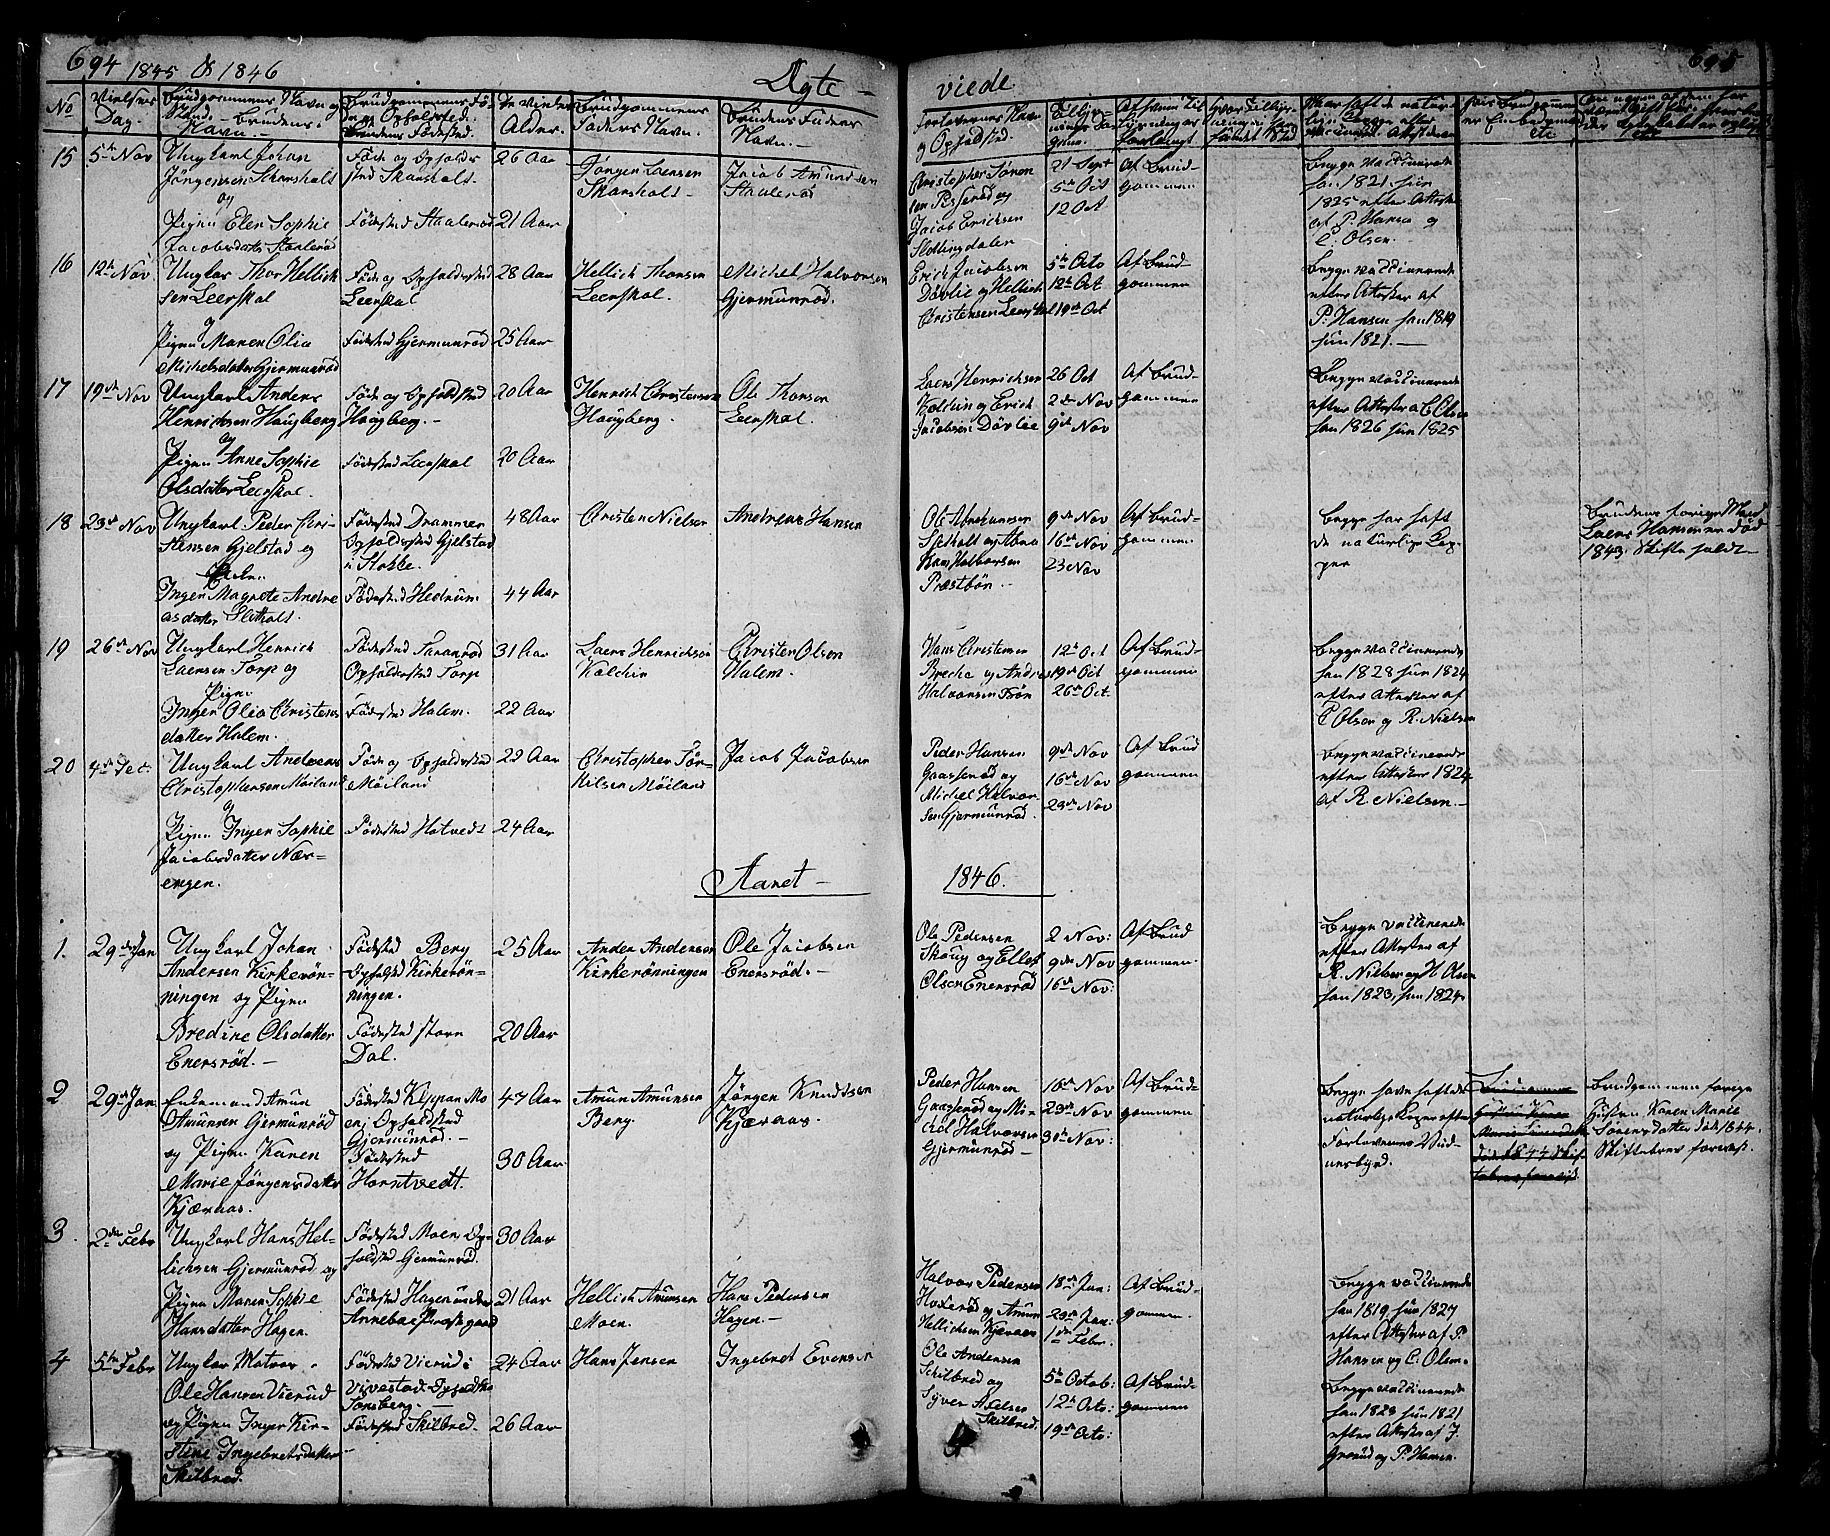 694 1845 & 1846
Ægte-
viede
695
No
Vielses Dag.
Brudgommens Navn og Stand. - Brudens Navn. -
Brudgommens Fødested og Opholdsted. Brudens Fødested.
De Viedes Alder.
Brudgommens Faders Navn.
Brudens Faders Navn. -
Forlovernes Navn og Opholdsted
15
5te Nov
Ungkarl Johan
Jörgensen Skarsholt
og
Pigen Elen Sophie
Jacobsdatter Staalerød
Føde og Opholds
sted Skarsholt.
Fødested Staalerød
26 Aar
21 Aar
Jörgen Larsen
Skarsholt -
Jacob Amundsen
Staalerød
Christopher Sören
sen Pesserød og
Jacob Ericksen
Slottingdalen
21 Sept
5te Oct
12 Oct
Af Brud-
gommen
Begge vaccinerede
han 1821 hun
1825 efter Attester
af P. Hansen og
C. Olsen. -
16
12te Nov
Ungkar Thor Hellich
sen Leerskal
og
Pigen Maren Olia
Michelsdatter Gjermunrød
Føde og Opholdssted
Leerskal
Fødested Gjermunrød
28 Aar
25 Aar
Hellich Thorsen
Leerskal.
Michel Halvorsen
Gjermunrød.
Erich Jacobsen
Dövlie og Hellich
Christensen Leerskal
5te Octo
12te Oct
19de Oct
Af Brud-
gommen
Begge vaccinerede
efter Attester af
P. Hansen han 1819
hun 1821. -
17
19de Nov
Ungkarl Anders
Henrichsen Haugberg
og
Pigen Anne Sophie
Olsdatter Leerskal.
Føde og Opholdsted
Haugberg. -
Fødested Leerskal
20 Aar
20 Aar
Henrich Christensen
Haugberg.
Ole Thorsen
Leerskal.
Laers Henrichsen
Kaldin og Erich
Jacobsen Dövlie
26 Oct
2den Nov
9de Nov
Af Brud-
gommen
Begge vaccinerede
efter Attester a C Olsen
han 1826 hun 1825
18
23de Nov
Ungkarl Peder Chri-
stensen Gjelstad og
Enken
Inger Magrete Andre
asdatter Slettholt.
Fødested Drammen
Opholdsted Gjelstad
i Stokke.
Fødested Hedrum
48 Aar
44 Aar
Christen Nielsen
Andreas Hansen
Ole Abrahamsen
Sletholt og Abra
Ham Halvorsen
Præstbön -
9de Nov
16de Nov
23 Nov
Af Brud-
gommen
Begge har haft
de naturlige Kop-
per
Brudens forrige Mand
Laers Hansen er död
1843. Skifte holdt -
19
26de Nov
Ungkarl Henrich
Laersen Torp og
Pigen
Inger Olia Christens
datter Holem.
Fødested Taranrød
Opholdested Torp
Fødested Holem.
31 Aar
22 Aar
Laers Henrichsen
Kaldin
Christen Olsen
Holem.
Hans Christensen
Breche og Andres
Halvorsen Trön
12te Oct
19de Oct
26de Oct.
Af Brud-
gommen
Begge vaccinerede
han 1828 hun 1824
efter Attester af
C Olsen og R. Nielsen
20
4de Dec:
Ungkarl Andreas
Christophersen Möiland
og
Pigen Inger Sophie
Jacobsdatter Nær-
engen.
Føde og Opholdssted
Möiland
Fødested Hotvedt
22 Aar
24 Aar
Christopher Tör-
kilsen Möiland
Jacob Jacobsen
Peder Hansen
Gaasserød og
Michel Halvor
sen Gjermunrød.
9de Nov
16de Nov
23de Nov
Af Brud
gommen
Begge vaccinerede
efter Attester 1824
af R. Nielsen. -
Aaret -
1846.
1.
29de Jan
Ungkarl Johan
Andersen Kirkerön-
ningen og Pigen
Bredine Olsdatter
Enersrød. -
Fødested Berg
Opholdsted Kirkerön-
ningen.
Fødested store
Dal.
25 Aar
20 Aar
Anders Andersen
Kirkerönningen
Ole Jacobsen
Enersrød. -
Ole Pedersen
Skaug og Ellef
Olsen Enersrød
2 Nov:
9de Nov
16de Nov:
Af Brud
gommen.
Begge vaccinerede
efter Attester af
R. Nielsen og H Olsen
han 1823, hun 1824.
2
29de Jan
Enkemand Amun
Amunsen Gjermunrød
og Pigen Karen
Marie Jörgensdatter
Kjærnaas.
Fødested Kloppan Mo
en; Opholdsted
Gjermunrød. -
Fødested
Horntvedt.
47 Aar
30 Aar
Amun Amunsen
Berg.
Jörgen Knudsen
Kjærnaas.
Peder Hansen
Gaasserød og Mi-
chel Halvorsen
Gjermunrød -
16de Nov
23de Nov
30te Nov:
Af Brud-
gommen
Begge have haft de
naturlige Koper efter
Forlovernes Vid-
nesbyrd.
Brudgommens forrige
Hustru Karen Marie
Sörensdatter död 1844.
Skiftebrev forevist.
3.
2den Febr
Ungkarl Hans Hel-
lichsen Gjermunrød og
Pigen Maren Sophie
Hansdatter Hagen.
Fødested Moen Op-
holdsted Gjermunrød.
Fødested Hagen under
Annebae Præstegaard
30 Aar
21 Aar
Hellich Amunsen
Moen.
Hans Pedersen
Hagen. -
Halvor Pedersen
Hoderød og Amun
Hellichsen Kjærnaas
18de Jan:
29de Jan:
1de Febr.
Af Brud-
gommen.
Begge vaccinerede
han 1819 hun 1827
efter Attester af P.
Hansen og C. Olsen.
4
5te Febr
Ungkar Matros
Ole Hansen Vierud
og Pigen Inger Kir-
stine Ingebretsdatter
Skilbred.
Fødested Vierud i
Vivestad. Opholdsted
Tønsberg. -
Fødested Skilbred.
24 Aar
26 Aar
Hans Jensen
Ingebret Evensen
Ole Andersen
Schilbred og
Syver Axelsen
Skilbred.
5te Octob:
12te Octo:
19de Octo:
Af Brud-
gommen
Begge vaccinerede
han 1823 hun 1821
efter Attester af J.
Grorud og P. Hansen.